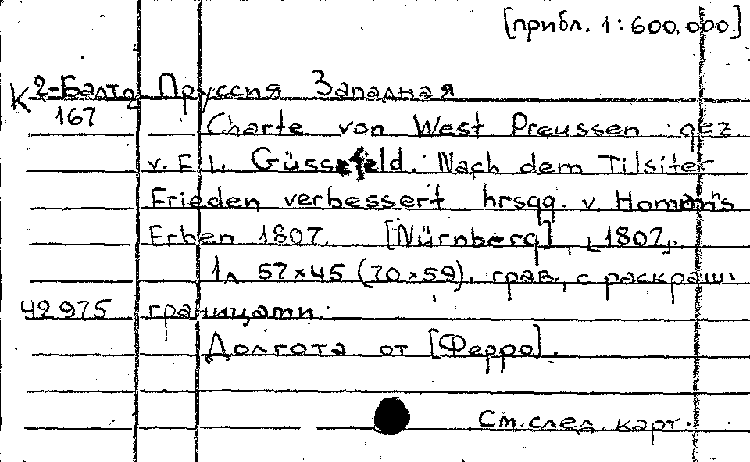 [прибл. 1:600.000]
К 2-Балт Пруссия Западная
167
Charte von West Preussen gez
v. F. L. Güssefeld. Nach dem Tilsiter
Frieden verbessert hrsgg. v. Homan's
Erben 1807. [Nürnberg] 1807.
1 л 57×45 (70×59). грав. с раскраш.
42975 границами.
Долгота от [Ферро].
См. след. карт.